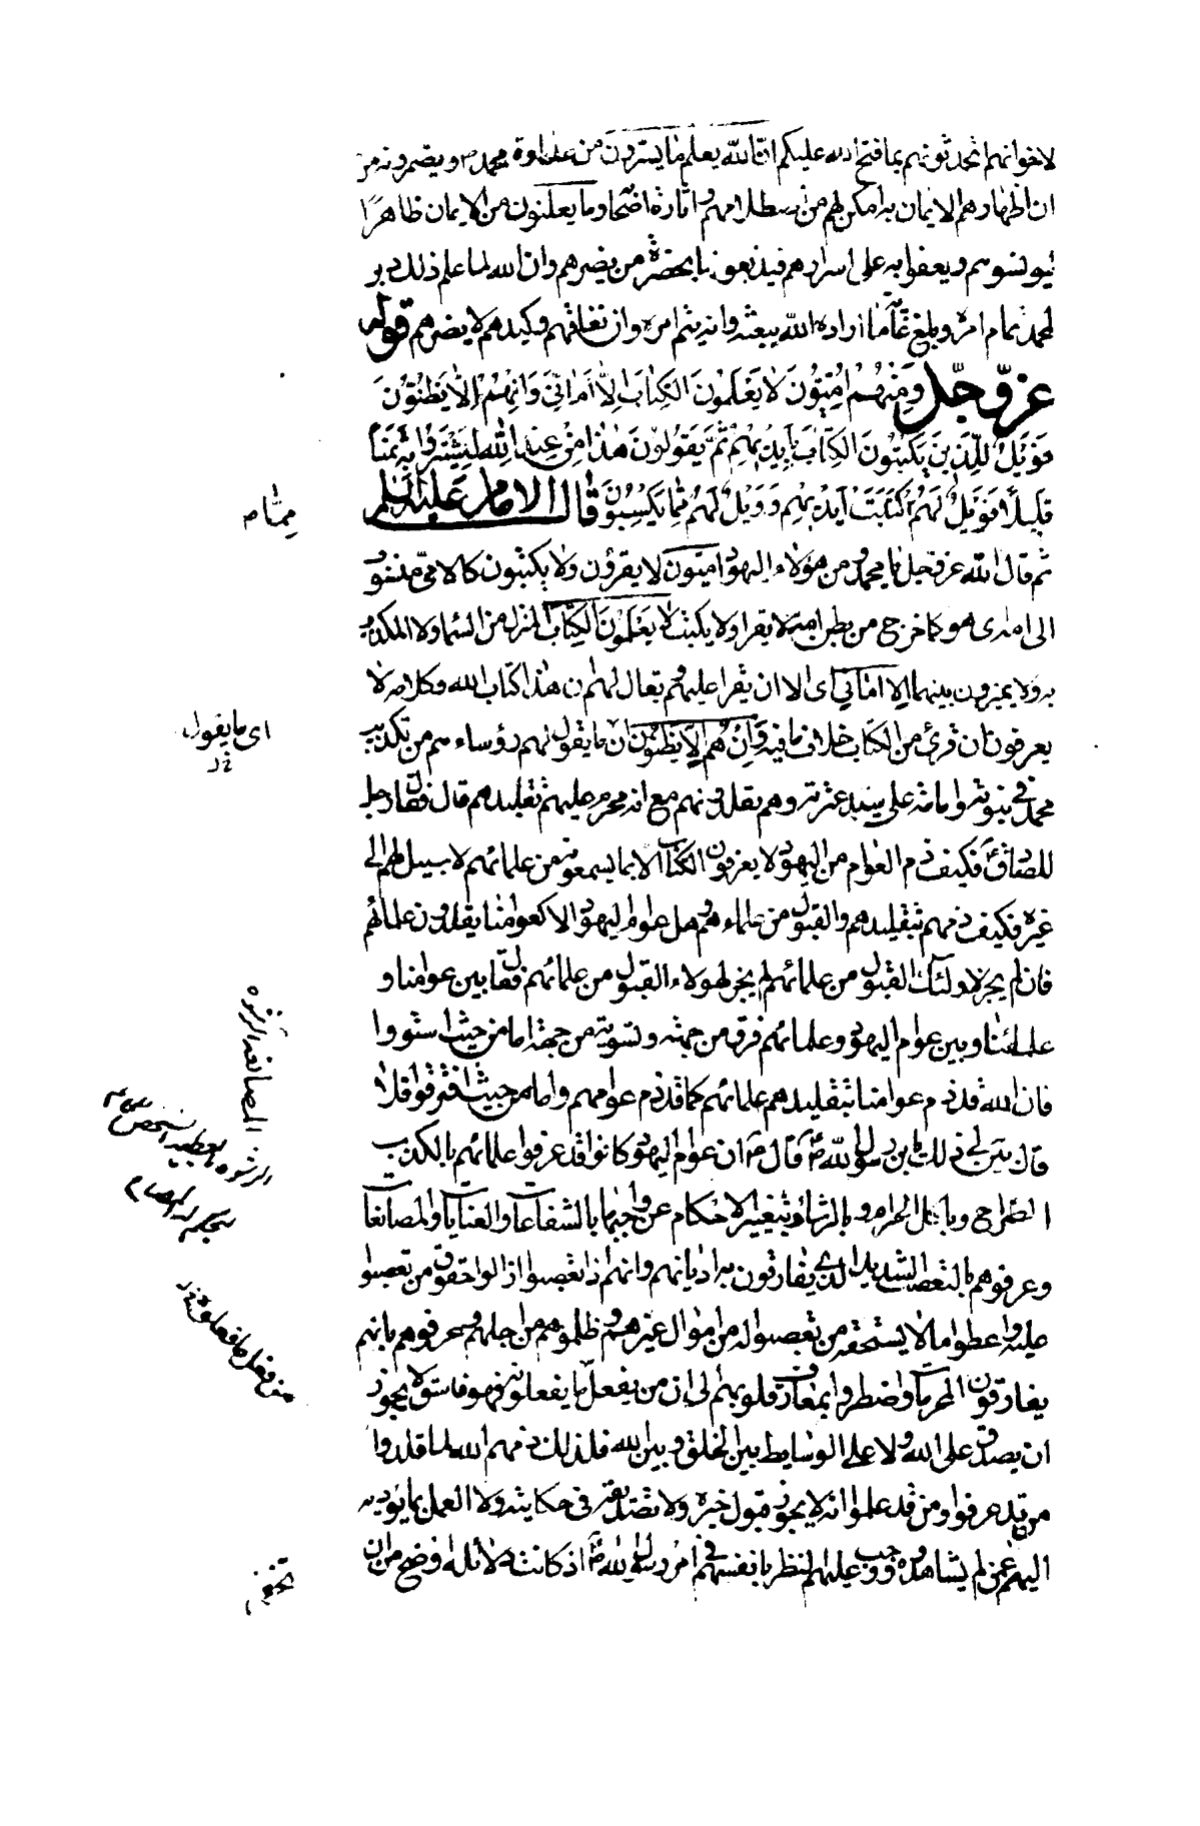 لاخوانهم اتحدثونهم بما فتح الله عليكم ان الله يعلم ما يسرون من عداوة محمد ص ويضمرونه من
ان اظهارهم الايمان به امكن لهم من اصطلامهم وابارة اصحابه وما يعلنون من الايمان ظاهرا
ليونسوهم ويقفوا به على اسرارهم فيذيعونها بحضرة من يضرهم وان الله لما علم ذلك دبر
لمحمد تمام امره وبلوغ غاية ما اراده الله ببعثه وانه يتم امره وان نفاقهم وكيدهم لا يضرهم قوله
عز وجل ومنهم اميون لا يعلمون الكتاب الا اماني وان هم الا يظنون
فويل للذين يكتبون الكتاب بايديهم ثم يقولون هذا من عند الله ليشتروا به ثمنا
قليلا فويل لهم مما كتبت ايديهم وويل لهم مما يكسبون قال الامام عليه السلم
ثم قال الله عز وجل يا محمد ومن هؤلاء اليهود اميون لا يقرؤن ولا يكتبون كالامي منسوب
الى امه اى هو كما خرج من بطن امه لا يقرا ولا يكتب لا يعلمون الكتاب المنزل من السماء ولا المكذب
به ولا يميزون بينهما الا اماني اى الا ان يقرا عليهم ويقال لهم ان هذا كتاب الله وكلامه لا
يعرفون ان قرئ من الكتاب خلاف ما فيه وان هم الا يظنون ان ما يقول لهم رؤساءهم من تكذيب
محمد في نبوته وامامة علي سيد عترته وهم يقلدونهم مع انه محرم عليهم تقليدهم قال فقال رجل
للصادق ع فكيف ذم العوام من اليهود لا يعرفون الكتاب الا بما يسمعونه من علمائهم لا سبيل لهم الى
غيره فكيف ذمهم بتقليدهم والقبول من علماءهم وهل عوام اليهود الا كعوامنا يقلدون علمائهم
فان لم يجز لاولئك القبول من علمائهم لم يجز لهؤلاء القبول من علمائهم فقال بين عوامنا و
علمائنا وبين عوام اليهود وعلمائهم فرق من جهة وتسوية من جهة اما من حيث استووا
فان الله قد ذم عوامنا بتقليدهم علمائهم كما قد ذم عوامهم واما من حيث افترقوا فلا
قال بين لي ذلك يابن رسول الله ص قال ع ان عوام اليهود كانوا قد عرفوا علمائهم بالكذب
الصراح وباكل الحرام و بالرشاء وبتغيير الاحكام عن واجبها بالشفاعات والعنايات والمصانعات
وعرفوهم بالتعصب الشديد الذي يفارقون به اديانهم وانهم اذا تعصبوا ازالوا حقوق من تعصبوا
عليه واعطوا ما لا يستحقه من تعصبوا له من اموال غيرهم وظلموهم من اجلهم وعرفوهم بانهم
يفارقون المحرمات واضطروا بمعارف قلوبهم الى ان من يفعل ما يفعلونه فهو فاسق لا يجوز
ان يصدق على الله ولا على الوسايط بين الخلق وبين الله فلذلك ذمهم الله لما قلدوا
من قد عرفوا ومن قد علموا انه لا يجوز قبول خبره ولا تصديقه في حكايته ولا العمل بما يؤديه
اليهم عمن لم يشاهدوه ووجب عليهم النظر بانفسهم في امر رسول الله ص اذ كانت دلائله اوضح من ان
مما م
اى ما يقول
خ ل
المصانعة الرشوه
الرشوه ما يعطيه الشخص
من فعل ما فعلوه خ ل
تخفى